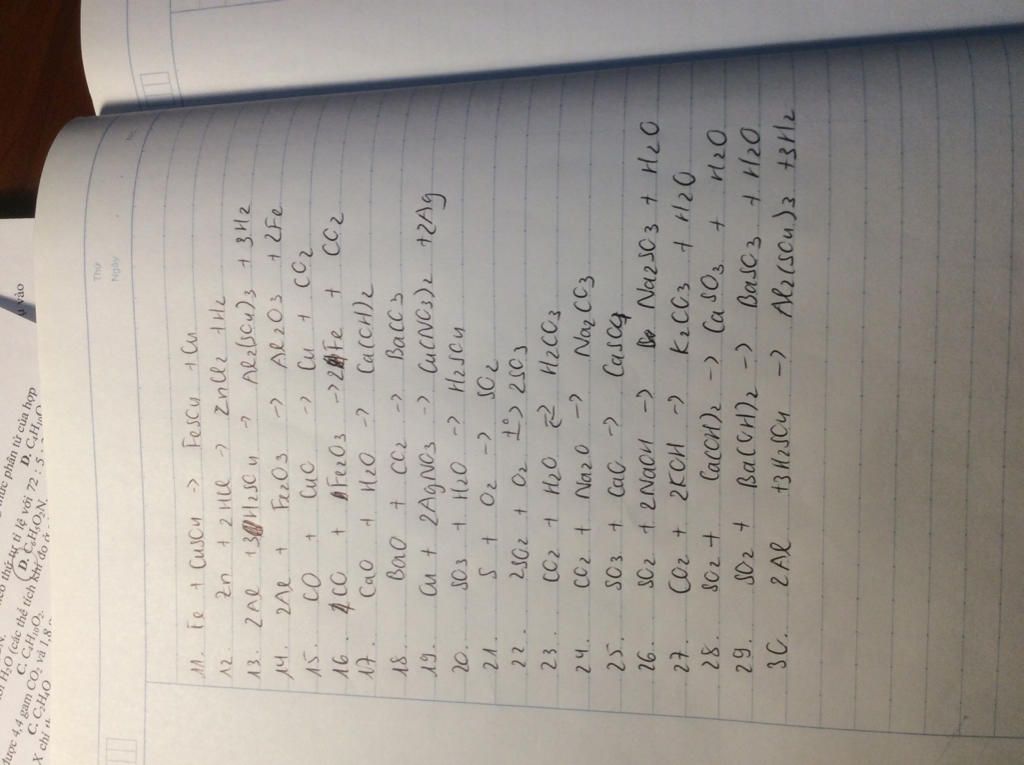 Thứ
Ngày
11. Fe + CuSO4 -> FeSO4 + Cu
12. Zn + 2HCl -> ZnCl2 + H2
13. 2Al + 3H2SO4 -> Al2(SO4)3 + 3H2
14. 2Al + Fe2O3 -> Al2O3 + 2Fe
15. CO + CuO -> Cu + CO2
16. CO + Fe2O3 -> 2Fe + CO2
17. CaO + H2O -> Ca(OH)2
18. BaO + CO2 -> BaCO3
19. Cu + 2AgNO3 -> Cu(NO3)2 + 2Ag
20. SO3 + H2O -> H2SO4
21. S + O2 -> SO2
22. 2SO2 + O2 t°> 2SO3
23. CO2 + H2O ⇌ H2CO3
24. CO2 + Na2O -> Na2CO3
25. SO3 + CaO -> CaSO4
26. SO2 + 2NaOH -> Na2SO3 + H2O
27. CO2 + 2KOH -> K2CO3 + H2O
28. SO2 + Ca(OH)2 -> CaSO3 + H2O
29. SO2 + Ba(OH)2 -> BaSO3 + H2O
30. 2Al + 3H2SO4 -> Al2(SO4)3 + 3H2
ức phân tử của hợp
eo thứ tự tỉ lệ với 72 : 5
D. C4H10O
D. C6H5O2N.
H2O (các thể tích khí đo ở
C. C4H10O2.
được 4,4 gam CO2 và 1,8
C. C2H4O
X chỉ
u vào